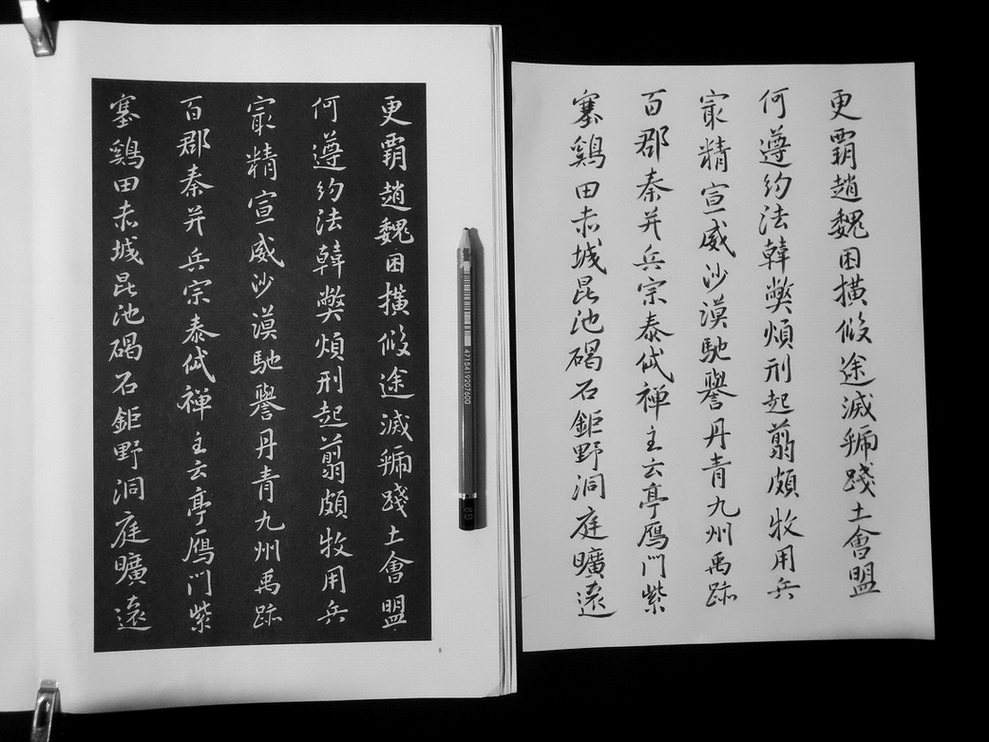 更霸趙魏困橫假途滅虢踐土會盟
何遵約法韓弊煩刑起翦頗牧用兵
冣精宣威沙漠馳譽丹青九州禹跡
百郡秦并岳宗泰岱禪主云亭鴈門紫
塞鷄田赤城昆池碣石鉅野洞庭曠遠
8
4715419207600
8B
更霸趙魏困橫假途滅虢踐土會盟
何遵約法韓弊煩刑起翦頗牧用兵
冣精宣威沙漠馳譽丹青九州禹跡
百郡秦并岳宗泰岱禪主云亭鴈門紫
塞鷄田赤城昆池碣石鉅野洞庭曠遠